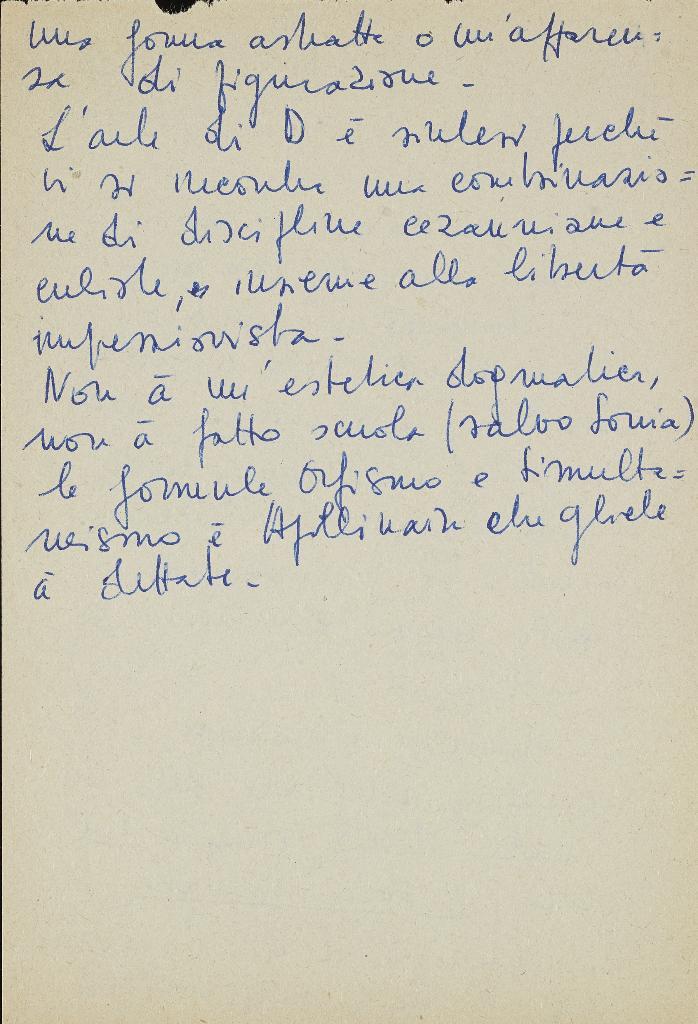 una forma astratta o un'apparen=
za di figurazione -
L'arte di D è sintesi perchè
vi si incontra una combinazio=
ne di discipline cezanniane e
cubiste, e insieme alla libertà
impressionista -
Non à un'estetica dogmatica,
non à fatto scuola (salvo Sonia)
le formule Orfismo e Simulta=
neismo è Apollinaire che gliele
à dettate -